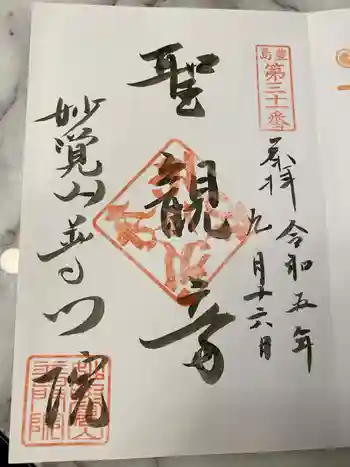 豊島
第三十一番
奉拝
令和五年
九月十六日
聖観音
妙覚山普門院